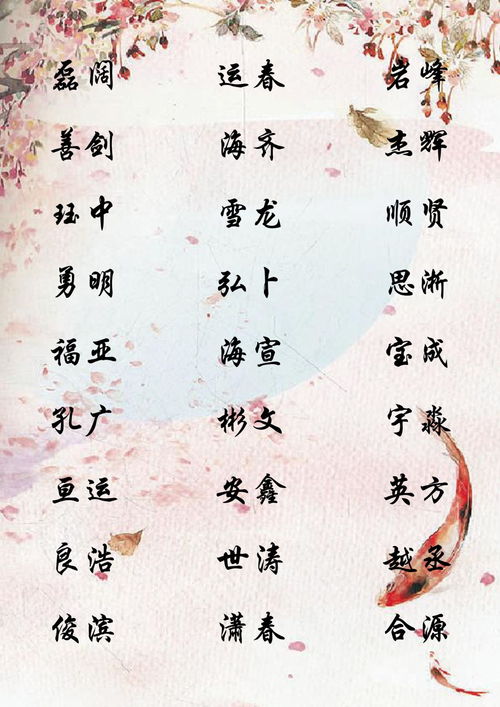 磊阔 运春 岩峰
善剑 海齐 杰辉
珏中 雪龙 顺贤
勇明 弘卜 思淅
福亚 海宣 宝成
孔广 彬文 宇淼
亘运 安鑫 英方
良浩 世涛 越丞
俊滨 潇春 合源